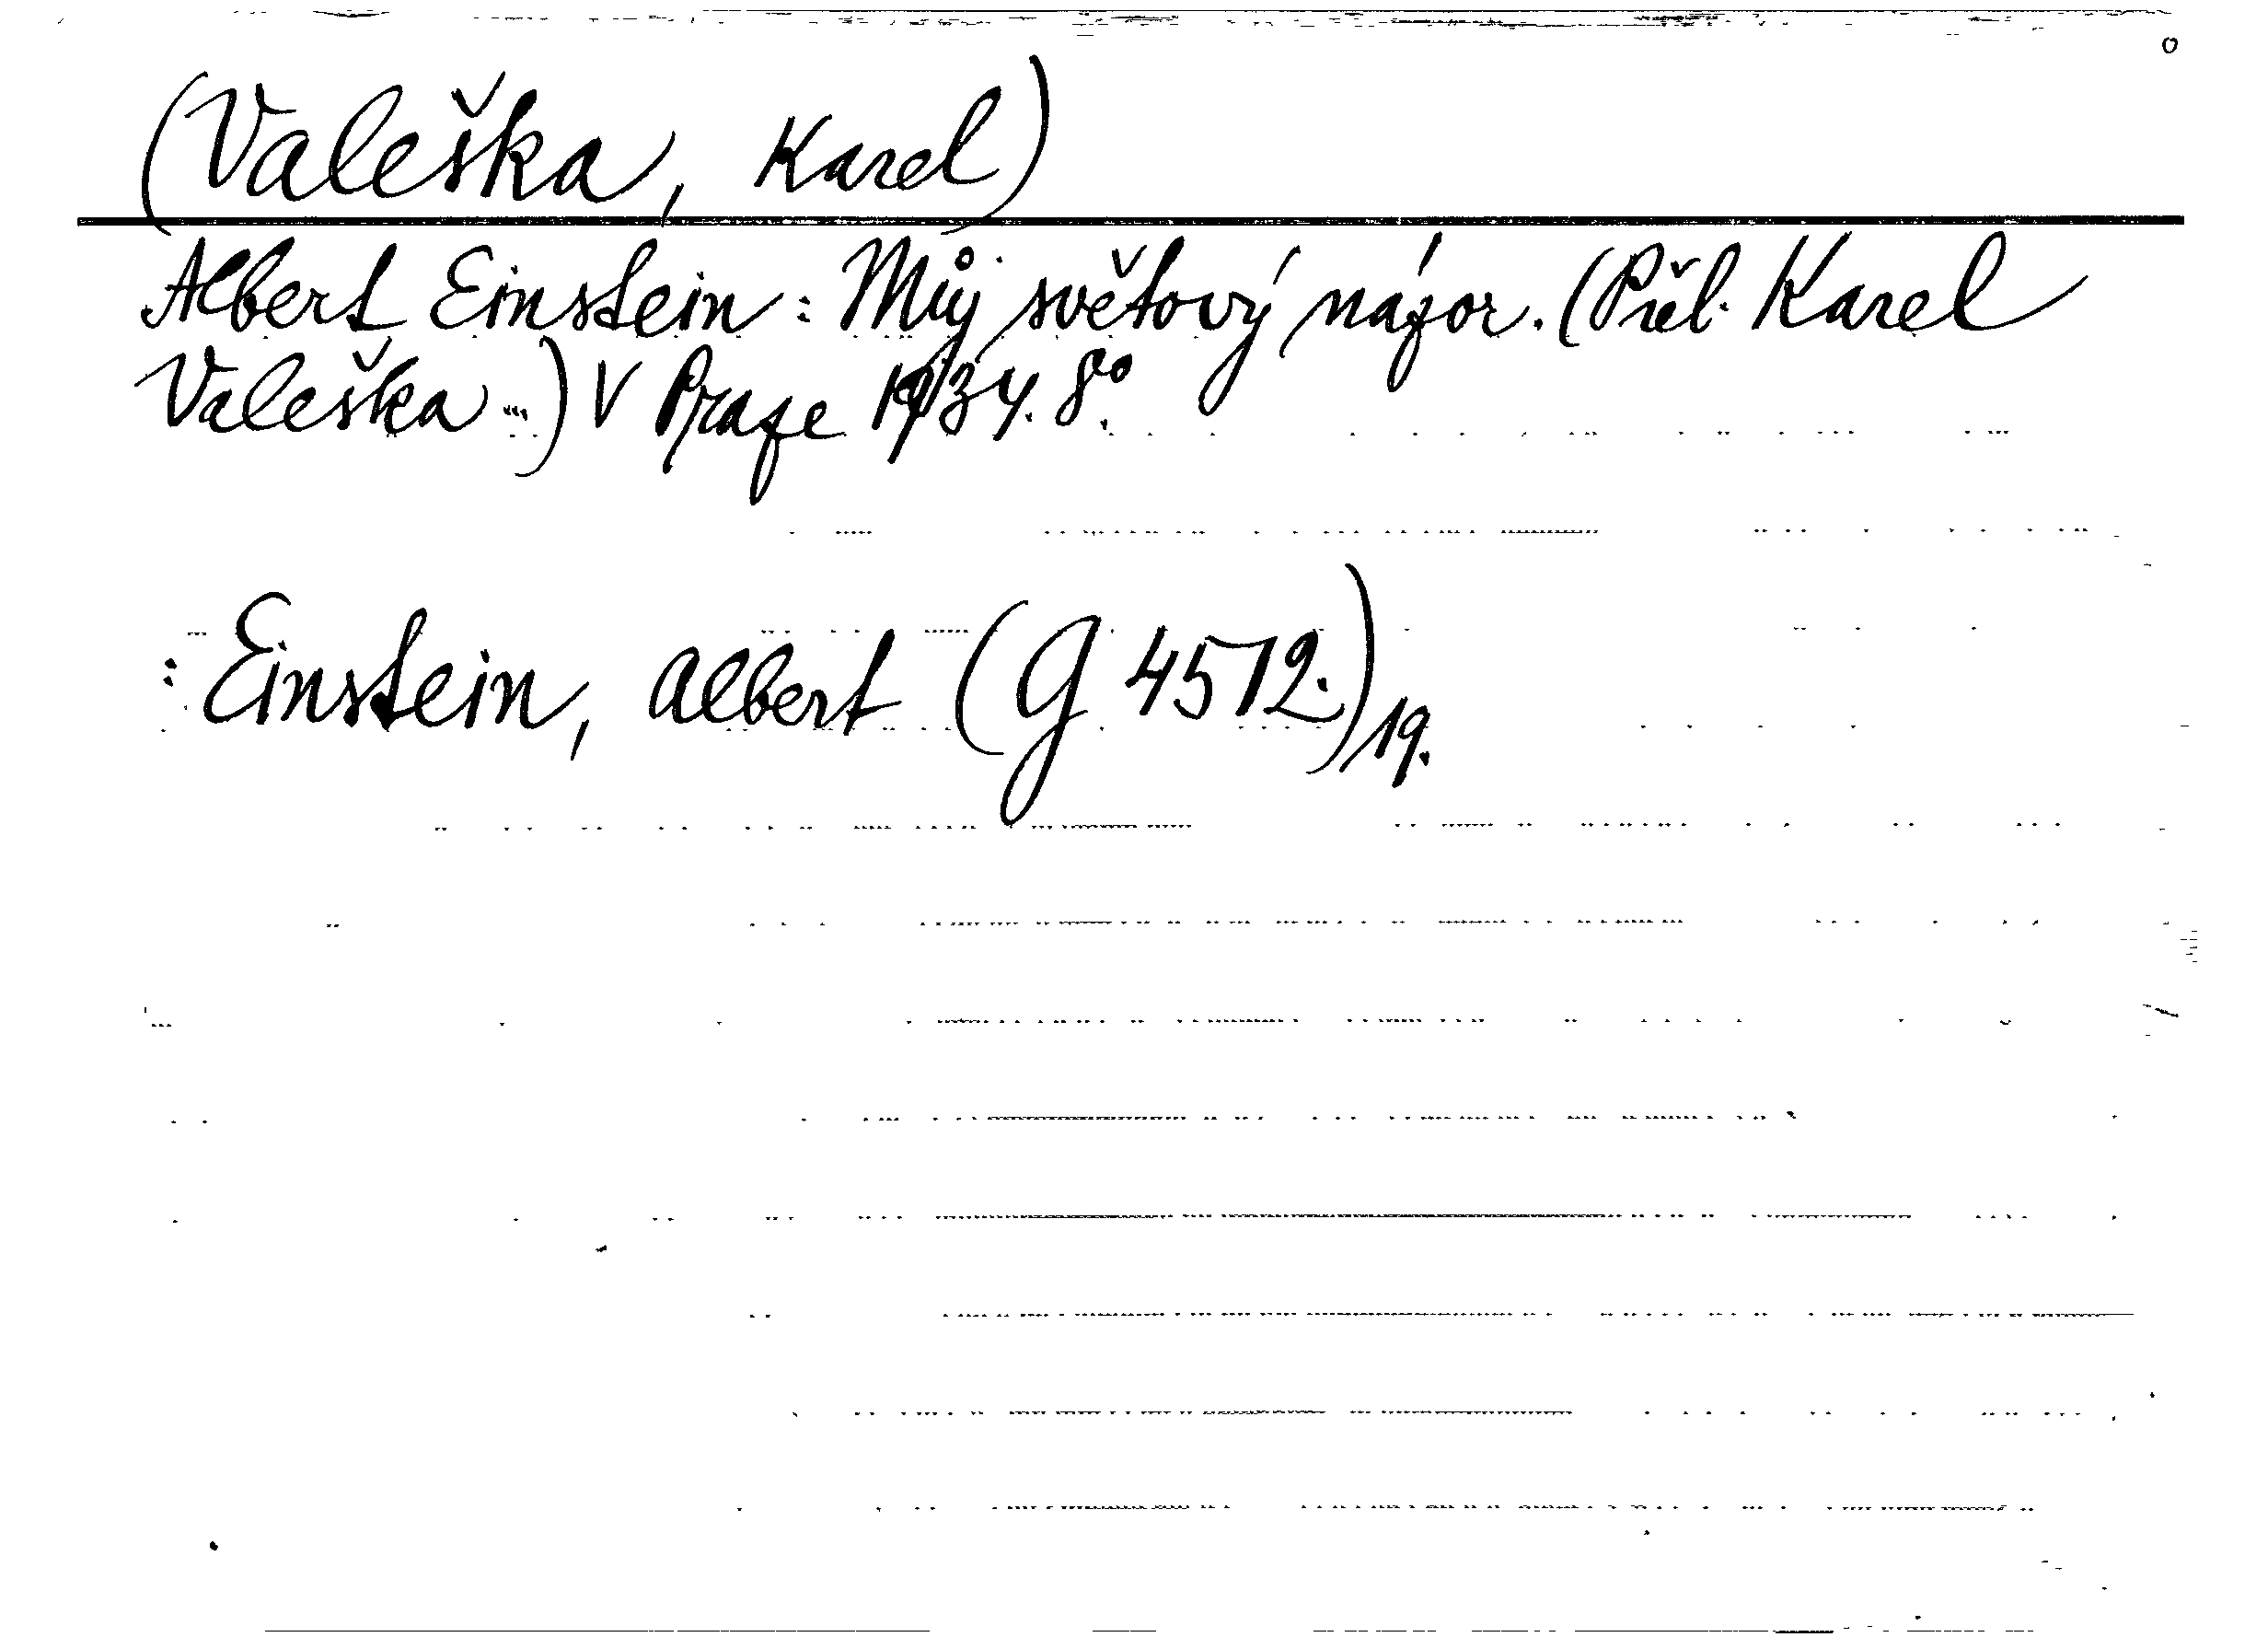 (Valeška, Karel)
Albert Einstein: Můj světový názor. (Přel. Karel
Valeška ...) V Praze 1934. 8°.
: Einstein, Albert (G 4572.)/19.